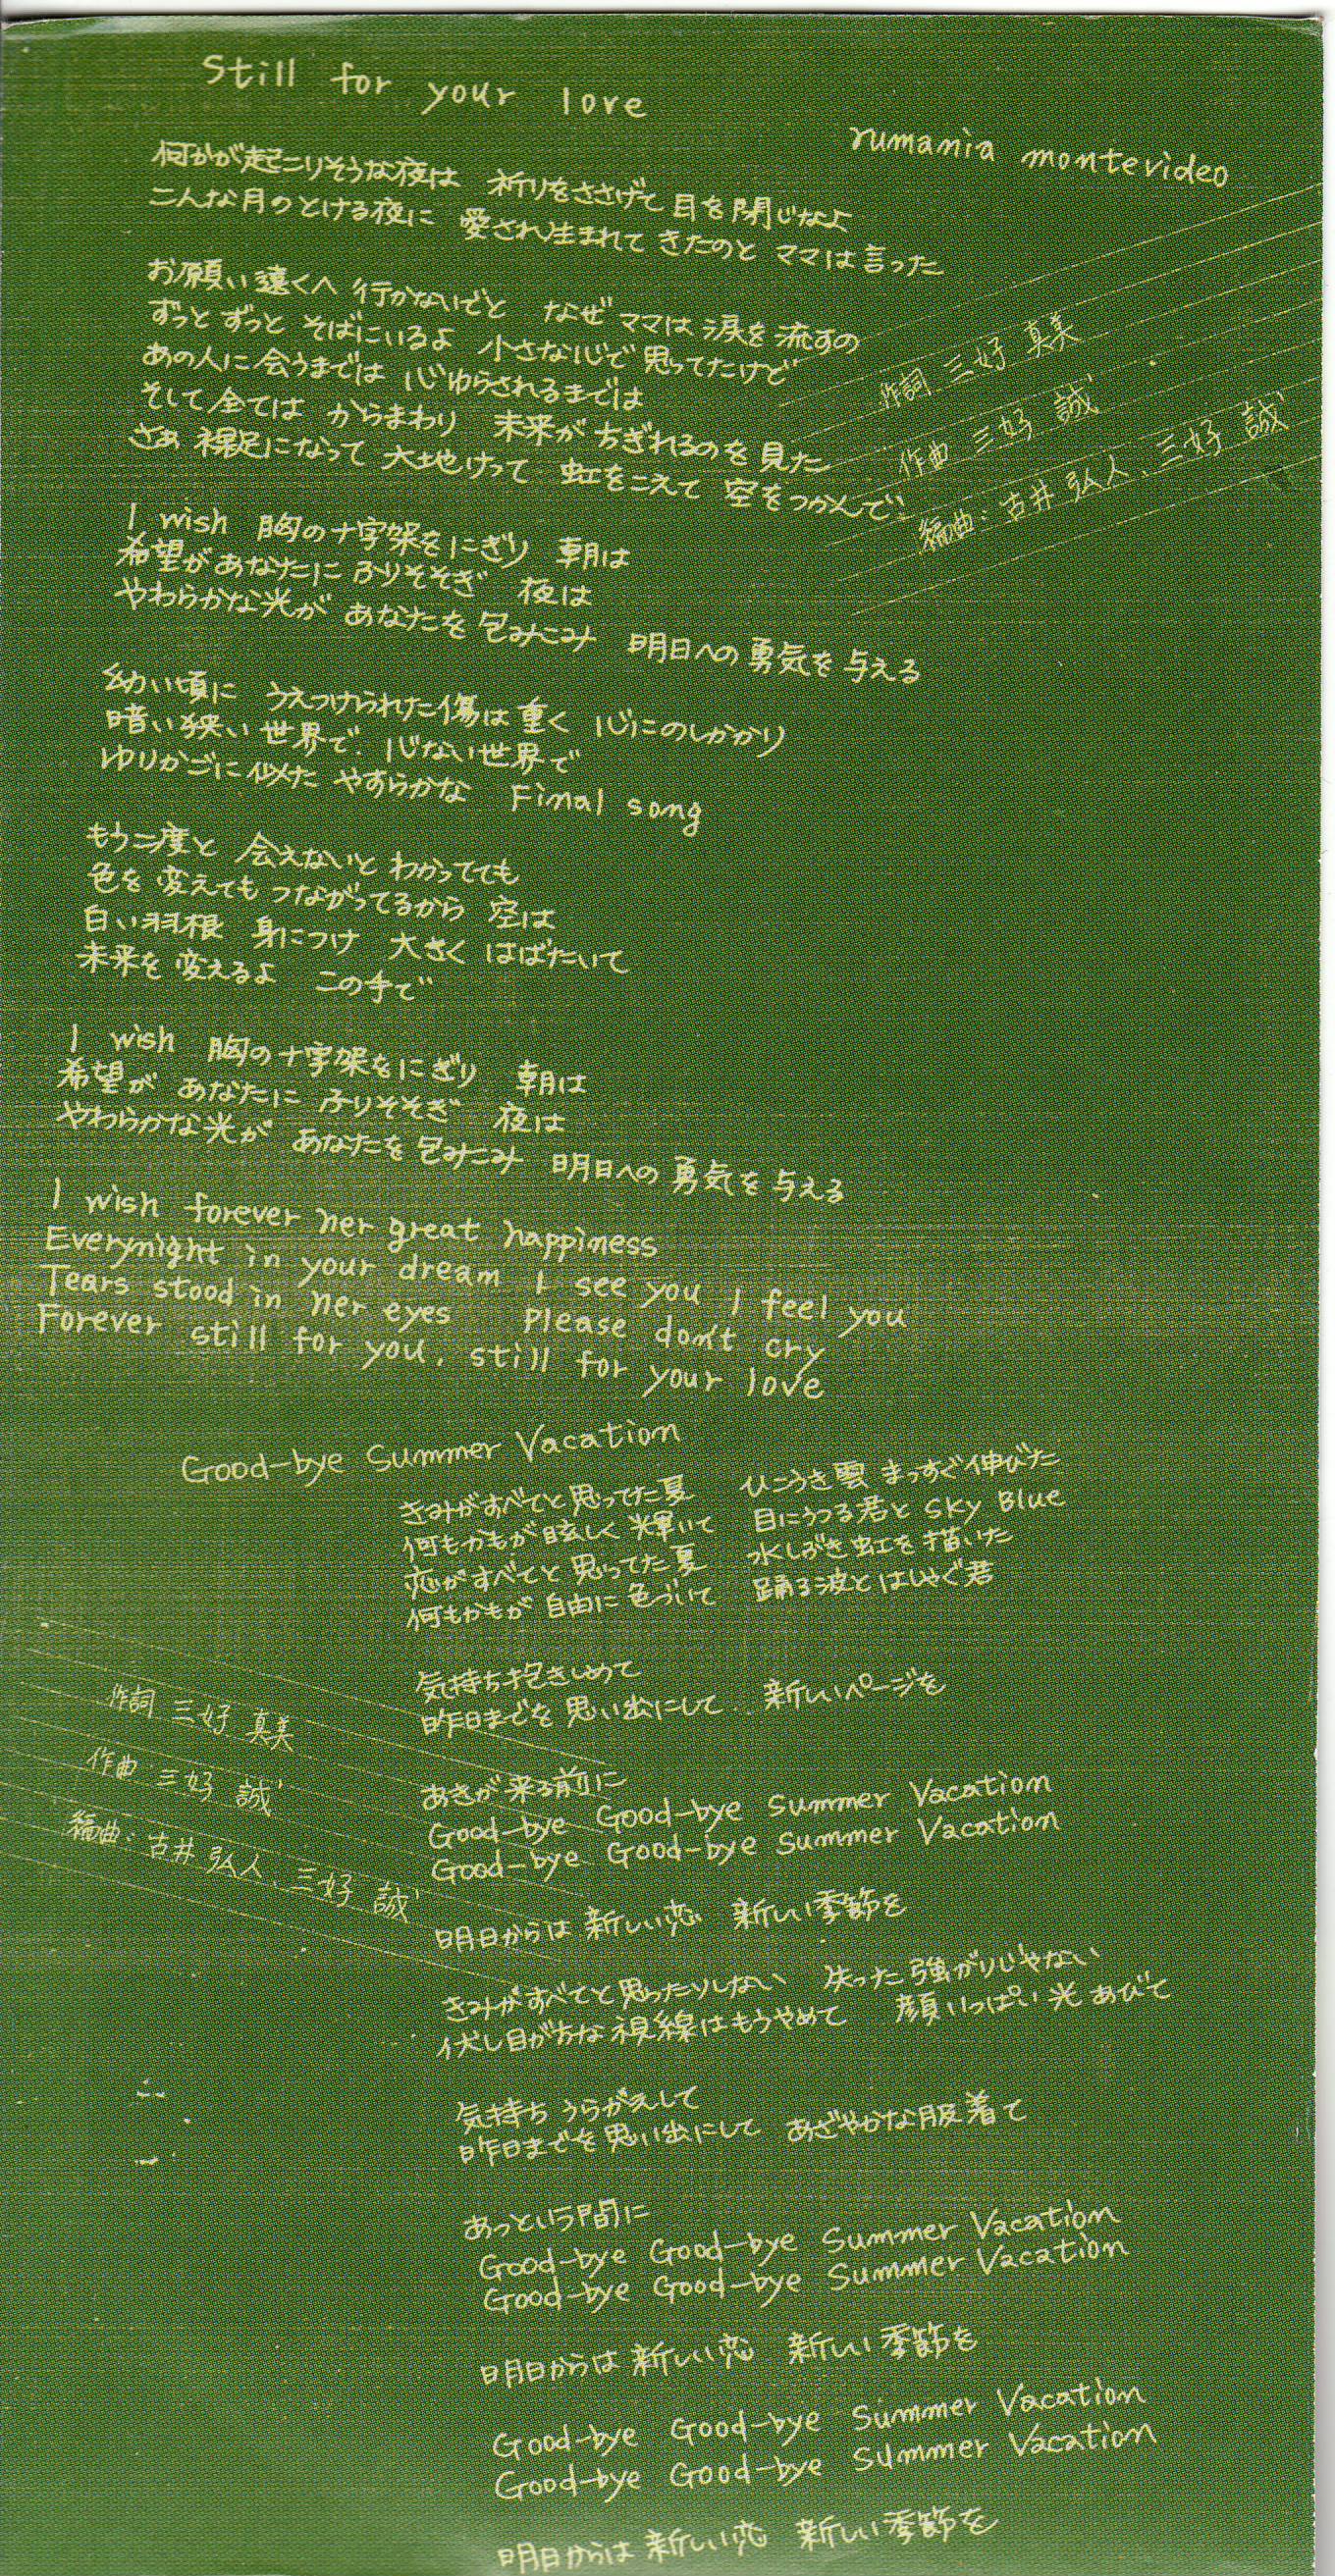 Still for your love
rumania montevideo
何かが起こりそうな夜は 祈りをささげて 目を閉じなよ
こんな月のとける夜に 愛され生まれて きたのと ママは言った
お願い遠くへ 行かないでと なぜ ママは 涙を 流すの
ずっと ずっと そばにいるよ 小さな心で 思ってたけど
あの人に会うまでは 心ゆらされるまでは
そして全ては からまわり 未来が ちぎれるのを 見た
さあ 裸足になって 大地けって 虹をこえて 空をつかんで!
作詞 三好 真美
作曲 三好 誠
編曲:古井 弘人、三好 誠
I wish 胸の十字架をにぎり 朝は
希望があなたに ふりそそぎ 夜は
やわらかな光が あなたを包みこみ 明日への 勇気を 与える
幼い頃に うえつけられた傷は重く 心にのしかかり
暗い狭い世界で. 心じない世界で
ゆりかごに似た やすらかな Final song
もう二度と 会えないと わかってても
色を 変えても つながってるから 空は
白い羽根 身につけ 大きく はばたいて
未来を 変えるよ この手で
I wish 胸の十字架をにぎり 朝は
希望が あなたに ふりそそぎ 夜は
やわらかな光が あなたを包みこみ 明日への 勇気を 与える
I wish forever her great happiness
Everynight in your dream I see you I feel you
Tears stood in her eyes Please don't cry
Forever still for you. still for your love
Good-bye Summer Vacation
きみがすべてと思ってた夏 ひこうき雲 まっすぐ伸びた
何もかもが眩しく 輝いて 目にうつる君と SKY Blue
恋がすべてと思ってた夏 水しぶき虹を描いた
何もかもが 自由に 色づいて 踊る波とはしゃぐ君
気持ち抱きしめて
昨日までを 思い出にして.. 新しいページを
作詞 三好 真美
作曲 三好 誠
編曲:古井 弘人、三好 誠
あきが来る前に
Good-bye Good-bye Summer Vacation
Good-bye Good-bye Summer Vacation
明日からは 新しい恋 新しい季節を
きみがすべてと思ったりしない 失った強がりじゃない
伏し目がちな視線はもうやめて 顔いっぱい光あびて
気持ち うらがえして
昨日までを思い出にして あざやかな服着て
あっという間に
Good-bye Good-bye Summer Vacation
Good-bye Good-bye Summer Vacation
明日からは 新しい恋 新しい季節を
Good-bye Good-bye Summer Vacation
Good-bye Good-bye Summer Vacation
明日からは 新しい恋 新しい季節を